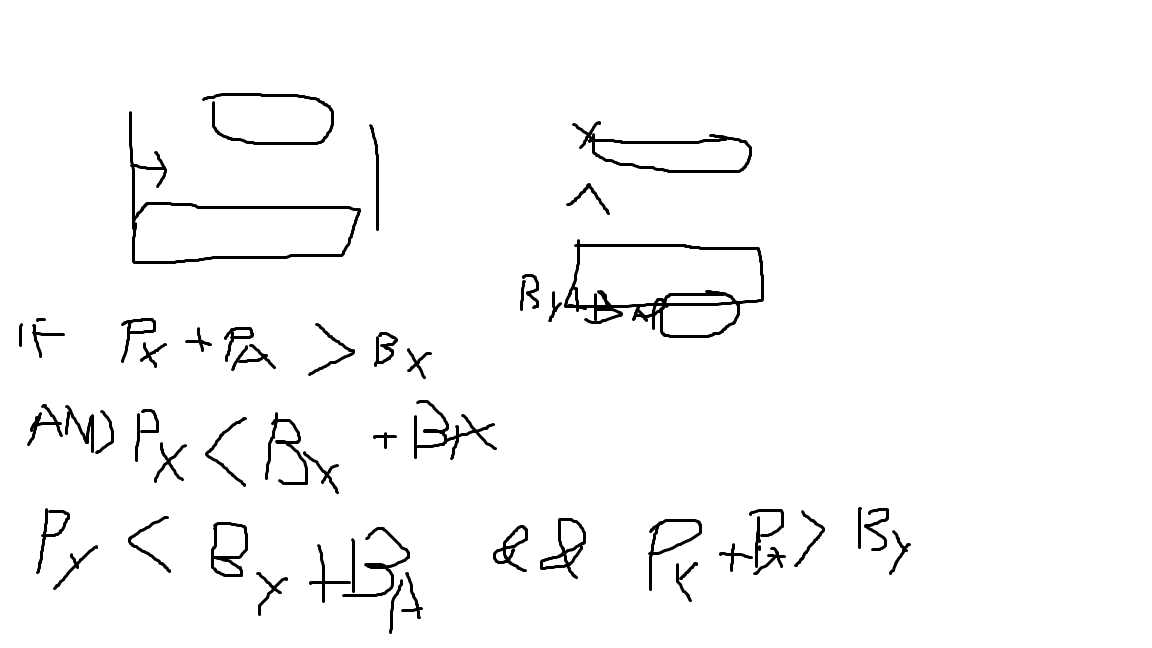 X
By+BA
IF Px + PA > Bx
AND Px < Bx + BA
Py < By + BA && Py + PA > By